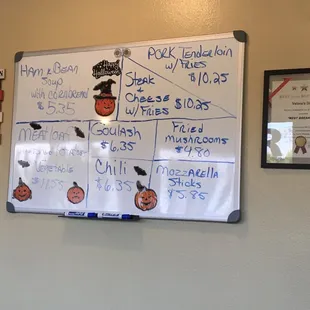 HAM & BEAN
Soup
with CORNBREAD
$5.35
Happy
Halloween
PORK Tenderloin
w/ FRIES
$10.25
Steak
+
Cheese $10.25
w/ FRIES
MEATLOAF
VEGETABLE
GOULASH
$6.35
Chili
$6.35
Fried
mushrooms
$4.80
MOZZARELLA
Sticks
$5.85